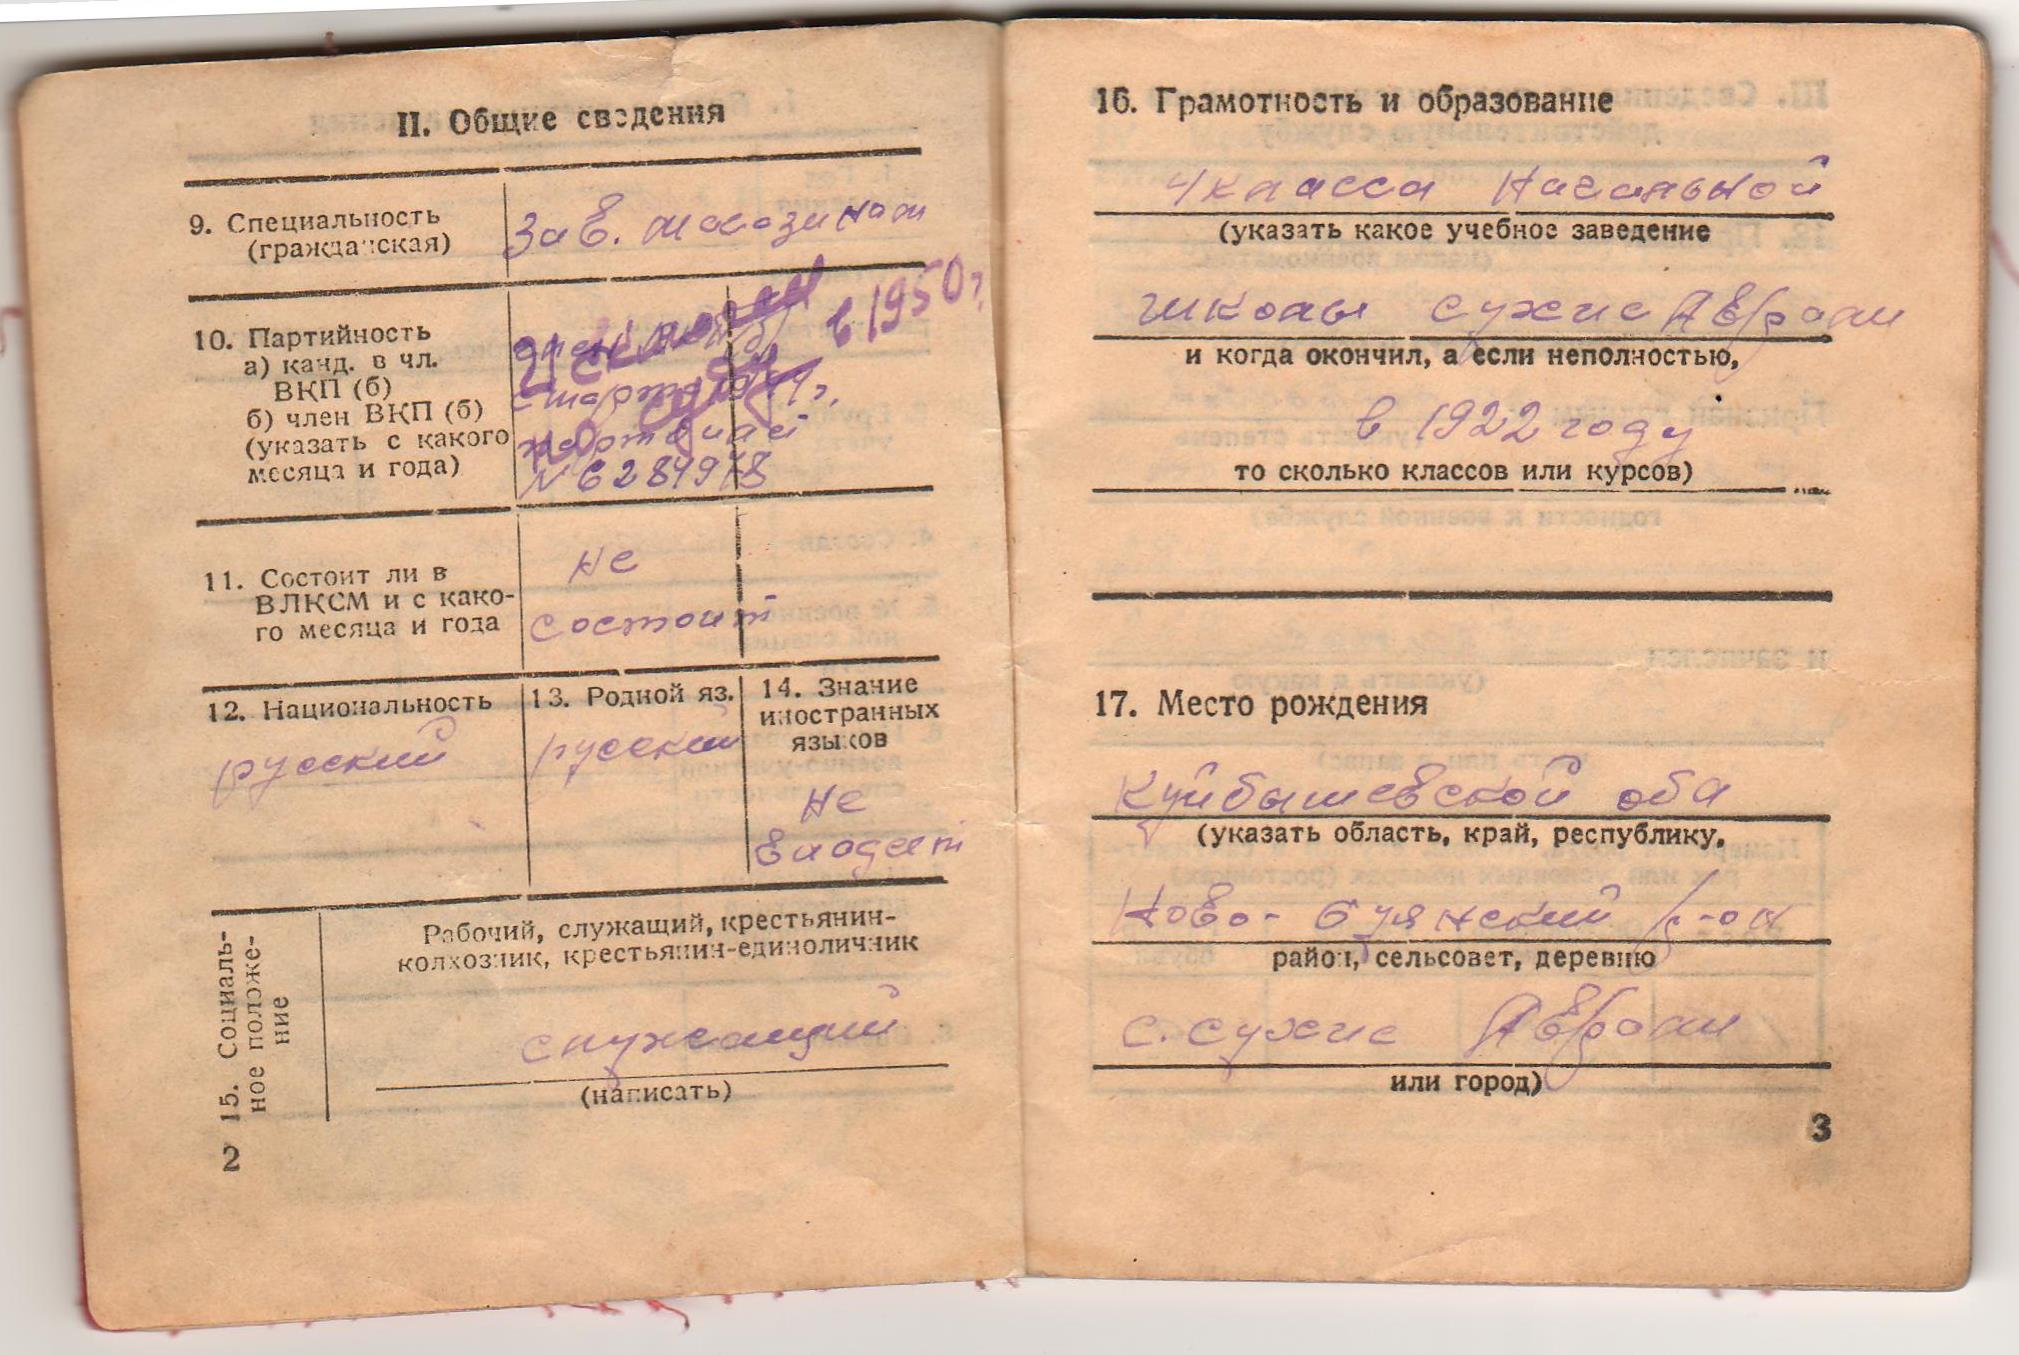 II. Общие сведения
9. Специальность
(гражданская)
Зав. магазином
10. Партийность
а) канд. в чл.
ВКП (б)
б) член ВКП (б)
(указать с какого
месяца и года)
в 1950 г.
№ 6284978
11. Состоит ли в
ВЛКСМ и с како-
го месяца и года
не
состоит
12. Национальность
русский
13. Родной яз.
русский
14. Знание
иностранных
языков
не
владеет
15. Социаль-
ное положе-
ние
Рабочий, служащий, крестьянин-
колхозник, крестьянин-единоличник
служащий
(написать)
2
16. Грамотность и образование
4 класса начальной
(указать какое учебное заведение
школы Сухие Аврали
и когда окончил, а если неполностью,
в 1922 году
то сколько классов или курсов)
17. Место рождения
Куйбышевской обл
(указать область, край, республику,
Ново-Буянский р-он
район, сельсовет, деревню
с. Сухие Аврали
или город)
3